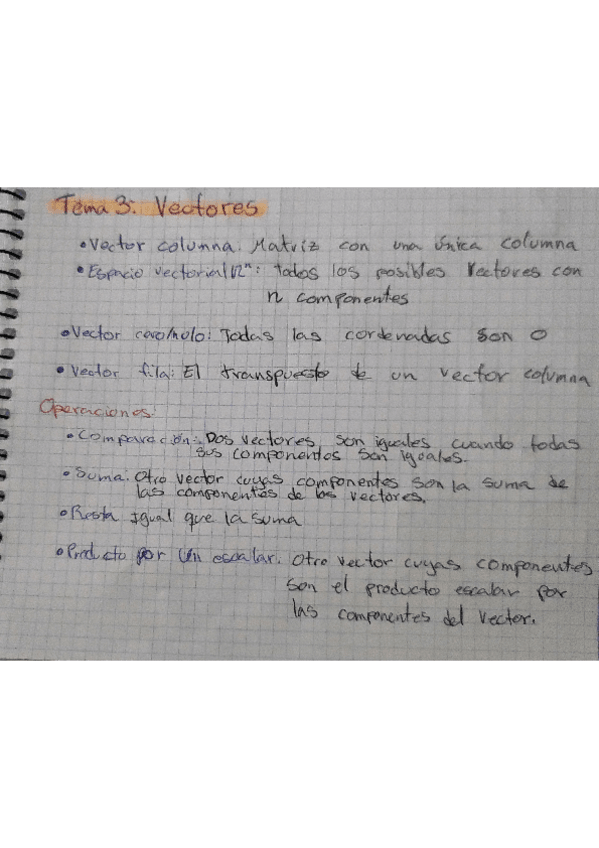 Tema 3: Vectores
• Vector columna: Matriz con una única columna
• Espacio vectorial ℝⁿ: Todos los posibles vectores con
n componentes
• Vector cero/nulo: Todas las cordenadas son 0
• Vector fila: El transpuesto de un vector columna
Operaciones:
• Comparación: Dos vectores son iguales cuando todas
sus componentos son iguales.
• Suma: Otro vector cuyas componentes son la suma de
las componentes de los vectores.
• Resta Igual que la suma
• Producto por un escalar: Otro vector cuyas componentes
son el producto escalar por
las componentes del vector.